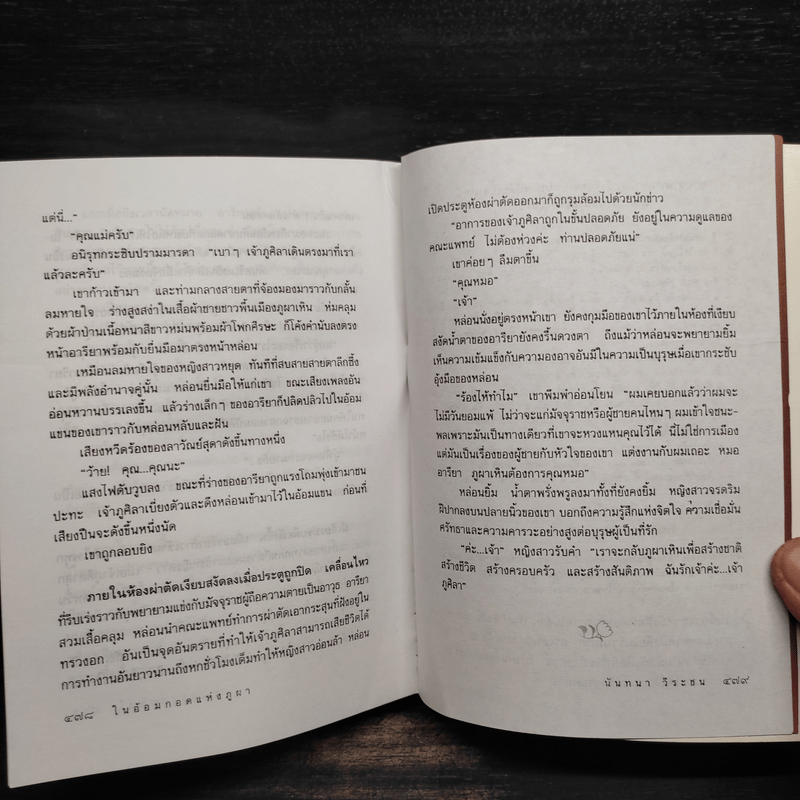 แต่นี่..."
"คุณแม่ครับ"
อนิรุทกระซิบปรามมารดา "เบาๆ เจ้าภูศิลาเดินตรงมาที่เรา
แล้วละครับ"
เขาก้าวเข้ามา และท่ามกลางสายตาที่จ้องมองมาราวกับกลั้น
ลมหายใจ ร่างสูงสง่าในเสื้อผ้าชายชาวพื้นเมืองภูผาเหิน ห่มคลุม
ด้วยผ้าป่านเนื้อหนาสีขาวหม่นพร้อมผ้าโพกศีรษะ ก็โค้งคำนับลงตรง
หน้าอาริยาพร้อมกับยื่นมือมาตรงหน้าหล่อน
เหมือนลมหายใจของหญิงสาวหยุด ทันทีที่สบสายสายตาลึกซึ้ง
และมีพลังอำนาจคู่นั้น หล่อนยื่นมือให้แก่เขา ขณะเสียงเพลงอัน
อ่อนหวานบรรเลงขึ้น แล้วร่างเล็กๆ ของอาริยาก็ปลิดปลิวไปในอ้อม
แขนของเขาราวกับหล่อนหลับและฝัน
เสียงหวีดร้องของลาวัณย์สุดาดังขึ้นทางหนึ่ง
"ว้าย! คุณ...คุณนะ"
แสงไฟดับวูบลง ขณะที่ร่างของอาริยาถูกแรงโถมพุ่งเข้ามาชน
ปะทะ เจ้าภูศิลาเบี่ยงตัวและดึงหล่อนเข้ามาไว้ในอ้อมแขน ก่อนที่
เสียงปืนจะดังขึ้นหนึ่งนัด
เขาถูกลอบยิง
ภายในห้องผ่าตัดเงียบสงัดลงเมื่อประตูถูกปิด เคลื่อนไหว
ที่รีบเร่งราวกับพยายามแข่งกับมัจจุราชผู้ถือความตายเป็นอาวุธ อาริยา
สวมเสื้อคลุม หล่อนนำคณะแพทย์ทำการผ่าตัดเอากระสุนที่ฝังอยู่ใน
ทรวงอก อันเป็นจุดอันตรายที่ทำให้เจ้าภูศิลาสามารถเสียชีวิตได้
การทำงานอันยาวนานถึงหกชั่วโมงเต็มทำให้หญิงสาวอ่อนล้า หล่อน
๔๗๘ ในอ้อมกอดแห่งภูผา
เปิดประตูห้องผ่าตัดออกมาก็ถูกรุมล้อมไปด้วยนักข่าว
"อาการของเจ้าภูศิลาถูกในขั้นปลอดภัย ยังอยู่ในความดูแลของ
คณะแพทย์ ไม่ต้องห่วงค่ะ ท่านปลอดภัยแน่"
เขาค่อยๆ ลืมตาขึ้น
"คุณหมอ"
"เจ้า"
หล่อนนั่งอยู่ตรงหน้าเขา ยังคงกุมมือของเขาไว้ภายในห้องที่เงียบ
สงัดน้ำตาของอาริยายังคงรื้นดวงตา ถึงแม้ว่าหล่อนจะพยายามยิ้ม
เห็นความเข้มแข็งกับความมองอาจอันมีในความเป็นบุรุษเมื่อเขากระชับ
อุ้งมือของหล่อน
"ร้องไห้ทำไม" เขาพึมพำอ่อนโยน "ผมเคยบอกแล้วว่าผมจะ
ไม่มีวันยอมแพ้ ไม่ว่าจะแก่มัจจุราชหรือผู้ชายคนไหนๆ ผมเข้าใจชนะ-
พลเพราะมันเป็นทางเดียวที่เขาจะหวงแหนคุณไว้ได้ นี่ไม่ใช่การเมือง
แต่มันเป็นเรื่องของผู้ชายกับหัวใจของเขา แต่งงานกับผมเถอะ หมอ
อาริยา ภูผาเหินต้องการคุณหมอ"
หล่อนยิ้ม น้ำตาพรั่งพรูลงมาทั้งที่ยังคงยิ้ม หญิงสาวจรดริม
ฝีปากลงบนปลายนิ้วของเขา บอกถึงความรู้สึกแห่งจิตใจ ความเชื่อมั่น
ศรัทธาและความคารวะอย่างสูงต่อบุรุษผู้เป็นที่รัก
"ค่ะ...เจ้า" หญิงสาวรับคำ "เราจะกลับภูผาเหินเพื่อสร้างชาติ
สร้างชีวิต สร้างครอบครัว และสร้างสันติภาพ ฉันรักเจ้าค่ะ...เจ้า
ภูศิลา"
นันทนา วีระชน ๔๗๙